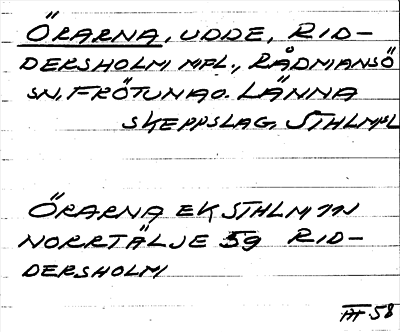 ÖRARNA, UDDE, RID-
DERSHOLM MPL., RÅDMANSÖ
SN, FRÖTUNA O. LÄNNA
SKEPPSLAG, STHLMSL
ÖRARNA EK STHLM 1N
NORRTÄLJE 59 RID-
DERSHOLM
58